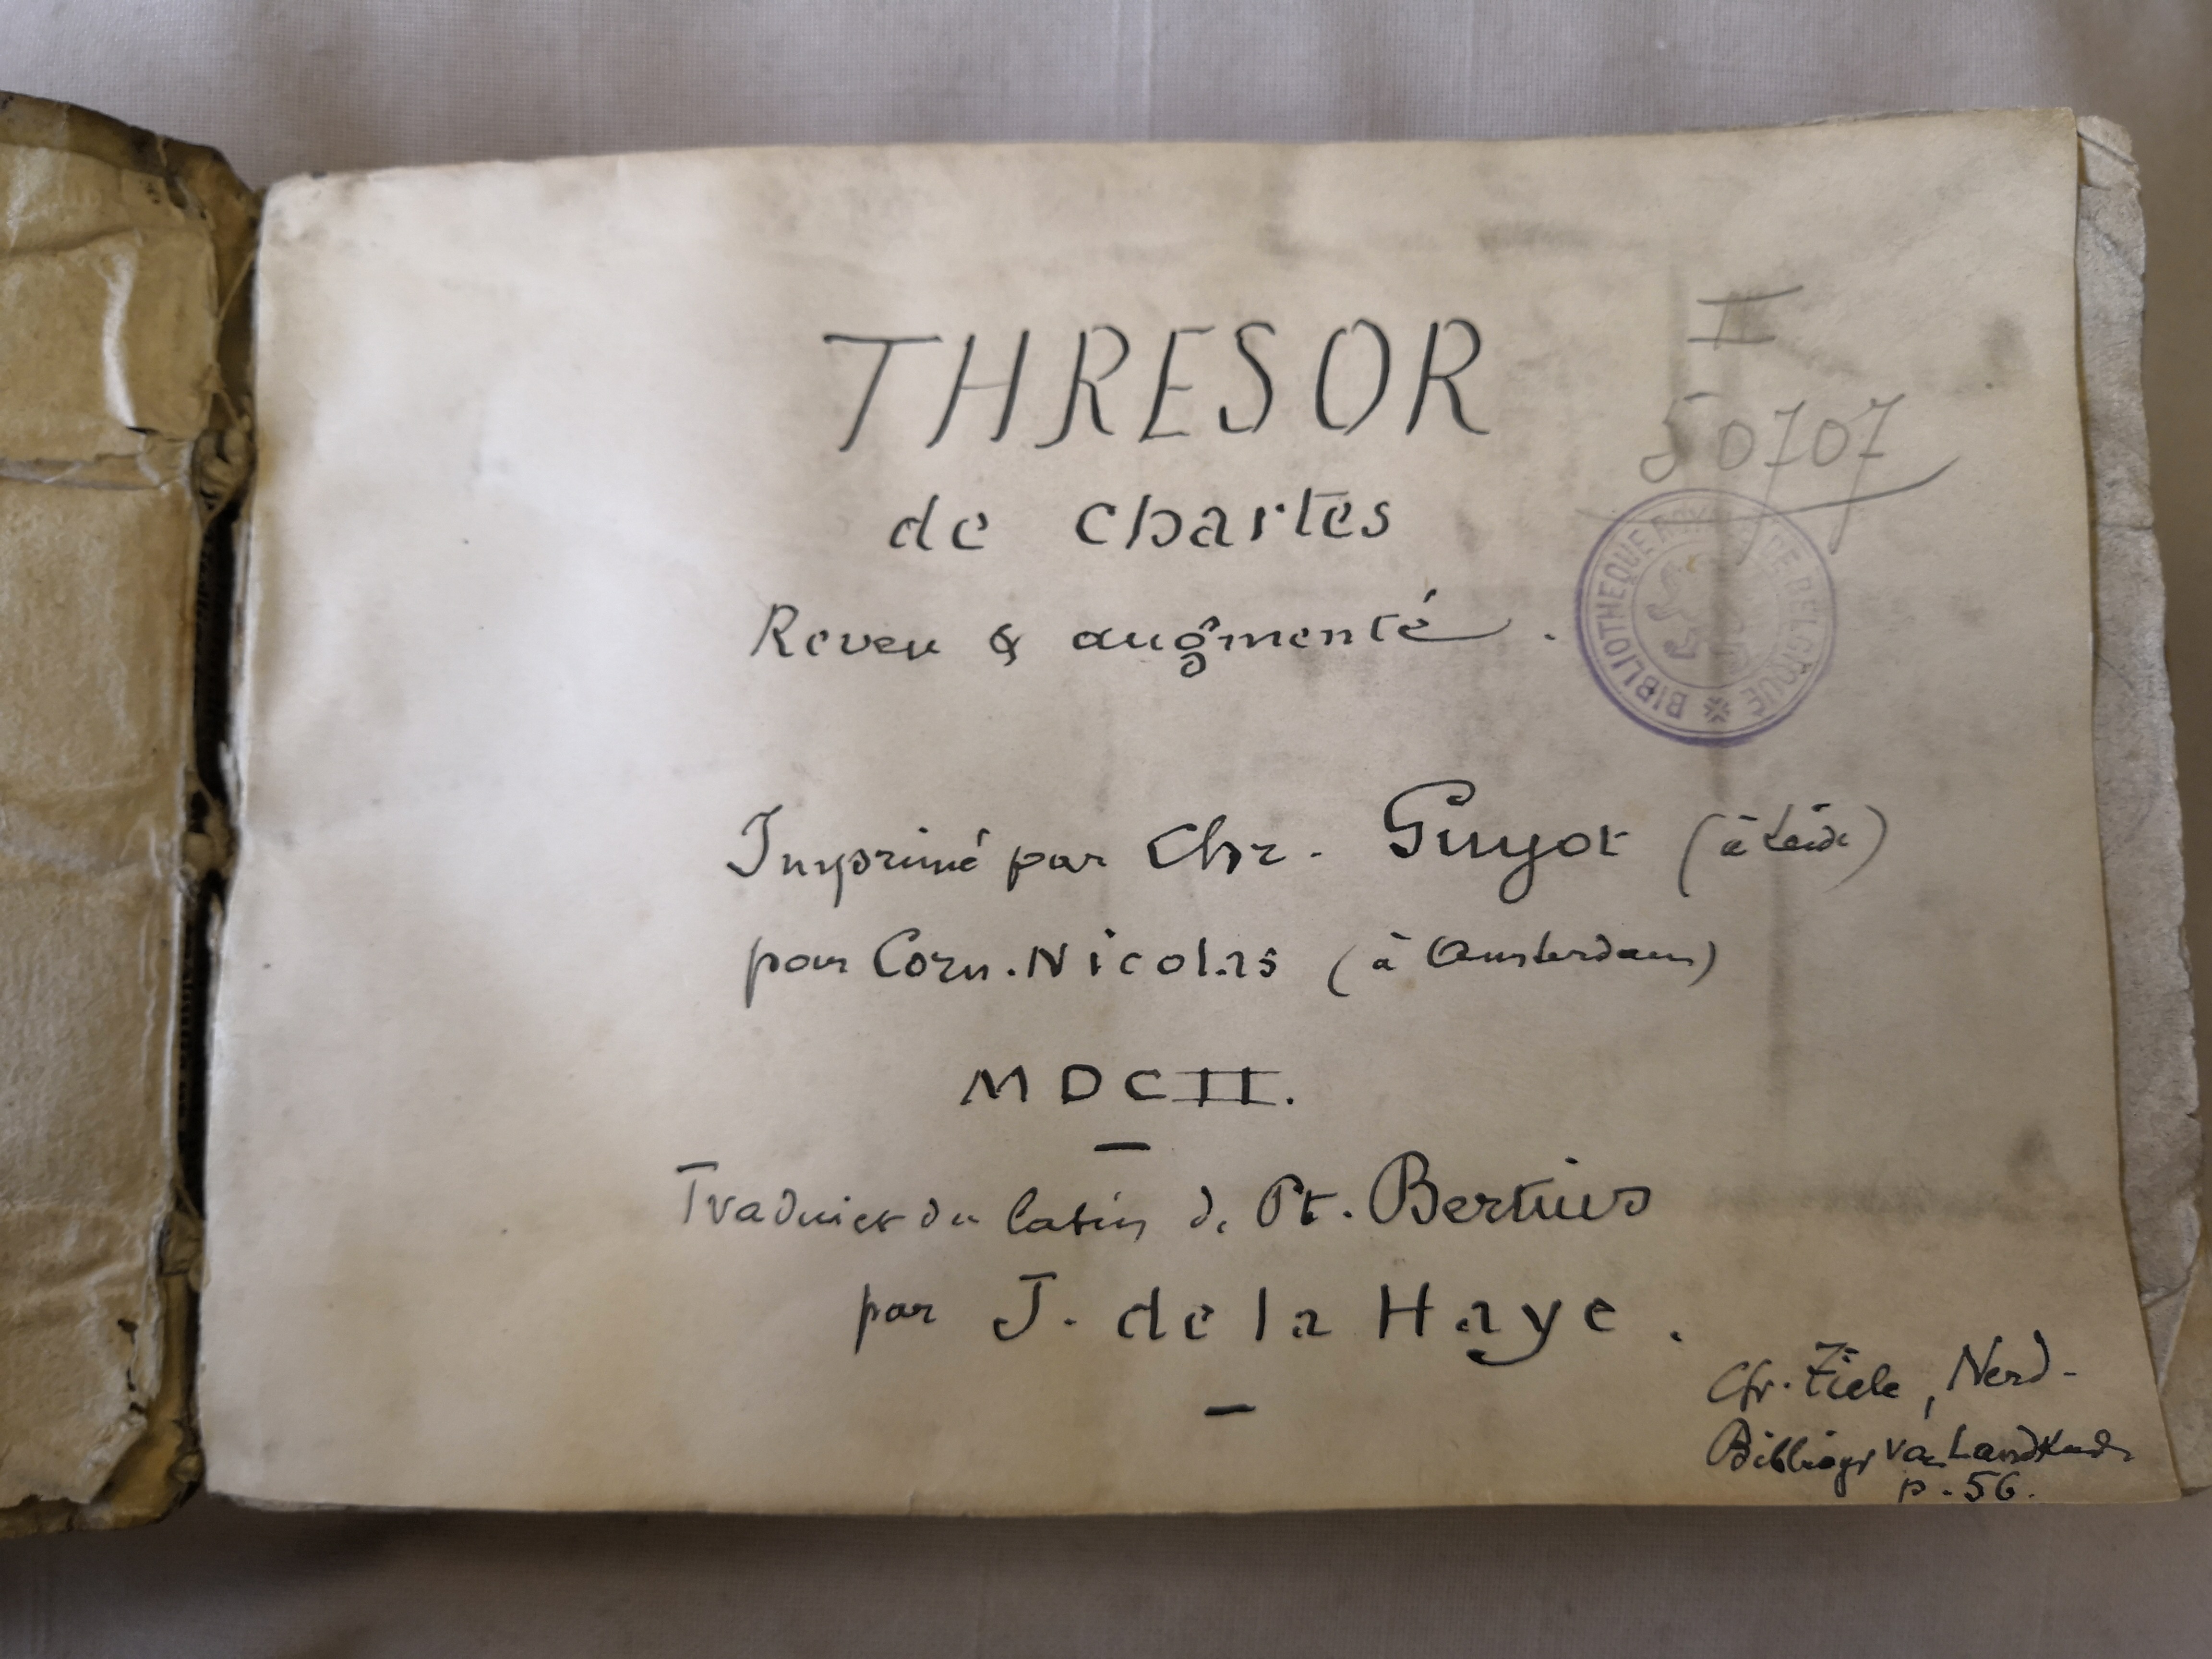 THRESOR
II
50707
de chartes
Reveu & augmenté.
BIBLIOTHEQUE ROYALE DE BELGIQUE
Imprimé par Chr. Guyot (à Leide)
pour Corn. Nicolas (à Amsterdam)
MDCII.
Traduict du latin de Pt. Bertius
par J. de la Haye.
Cfr. Tiele, Nerd-
Bibliogr van Landkunde
p. 56.